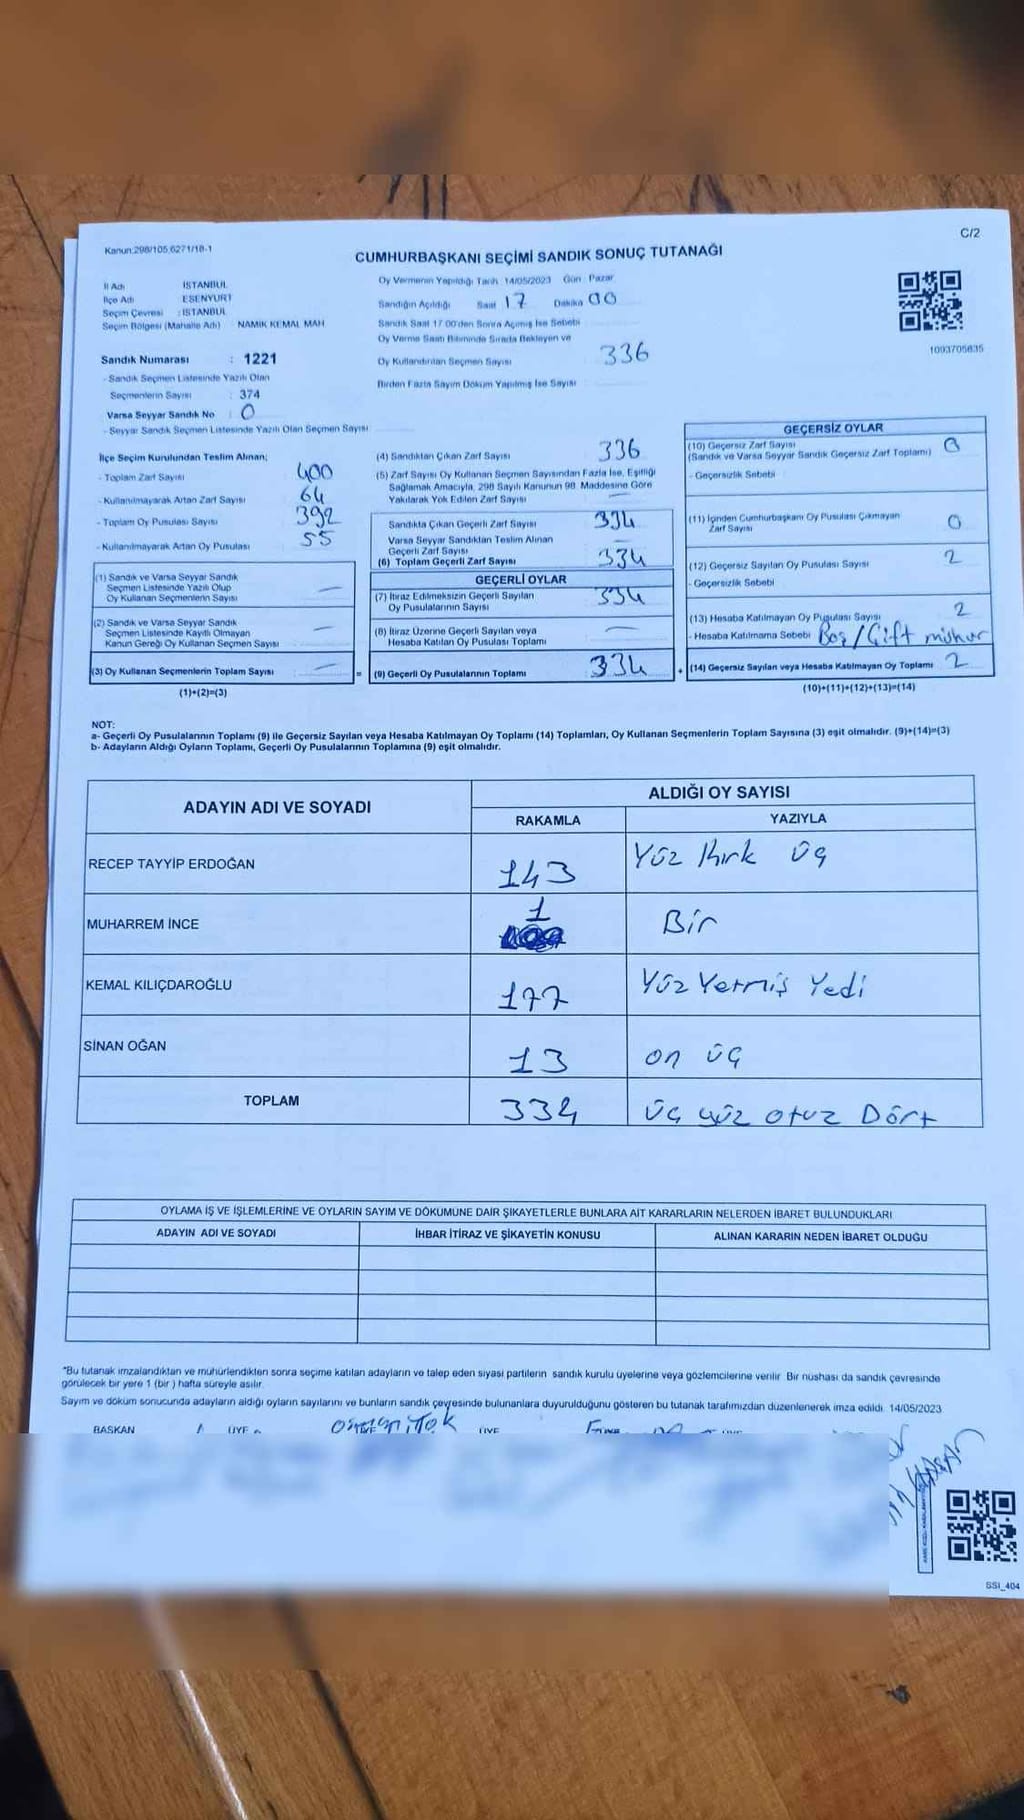 Kanun:298/105,6271/18-1
C/2
CUMHURBAŞKANI SEÇİMİ SANDIK SONUÇ TUTANAĞI
İl Adı İSTANBUL
İlçe Adı ESENYURT
Seçim Çevresi : İSTANBUL
Seçim Bölgesi (Mahalle Adı) : NAMIK KEMAL MAH
Oy Vermenin Yapıldığı Tarih 14/05/2023 Gün Pazar
Sandığın Açıldığı Saat 17 Dakika 00
Sandık Saat 17 00'den Sonra Açılmış İse Sebebi
Oy Verme Saati Bitiminde Sırada Bekleyen ve
Oy Kullandırılan Seçmen Sayısı 336
Birden Fazla Sayım Döküm Yapılmış İse Sayısı
1093705635
Sandık Numarası : 1221
- Sandık Seçmen Listesinde Yazılı Olan
Seçmenlerin Sayısı : 374
Varsa Seyyar Sandık No : 0
- Seyyar Sandık Seçmen Listesinde Yazılı Olan Seçmen Sayısı
İlçe Seçim Kurulundan Teslim Alınan;
- Toplam Zarf Sayısı 400
- Kullanılmayarak Artan Zarf Sayısı 64
- Toplam Oy Pusulası Sayısı 392
- Kullanılmayarak Artan Oy Pusulası 55
(1) Sandık ve Varsa Seyyar Sandık
Seçmen Listesinde Yazılı Olup
Oy Kullanan Seçmenlerin Sayısı —
(2) Sandık ve Varsa Seyyar Sandık
Seçmen Listesinde Kayıtlı Olmayan
Kanun Gereği Oy Kullanan Seçmen Sayısı —
(3) Oy Kullanan Seçmenlerin Toplam Sayısı —
(1)+(2)=(3)
(4) Sandıktan Çıkan Zarf Sayısı 336
(5) Zarf Sayısı Oy Kullanan Seçmen Sayısından Fazla İse, Eşitliği
Sağlamak Amacıyla, 298 Sayılı Kanunun 98. Maddesine Göre
Yakılarak Yok Edilen Zarf Sayısı —
Sandıkta Çıkan Geçerli Zarf Sayısı 334
Varsa Seyyar Sandıktan Teslim Alınan
Geçerli Zarf Sayısı
(6) Toplam Geçerli Zarf Sayısı 334
GEÇERLİ OYLAR
(7) İtiraz Edilmeksizin Geçerli Sayılan
Oy Pusulalarının Sayısı 334
(8) İtiraz Üzerine Geçerli Sayılan veya
Hesaba Katılan Oy Pusulası Toplamı —
= (9) Geçerli Oy Pusulalarının Toplamı 334 +
GEÇERSİZ OYLAR
(10) Geçersiz Zarf Sayısı 0
(Sandık ve Varsa Seyyar Sandık Geçersiz Zarf Toplamı)
- Geçersizlik Sebebi
(11) İçinden Cumhurbaşkanı Oy Pusulası Çıkmayan
Zarf Sayısı 0
(12) Geçersiz Sayılan Oy Pusulası Sayısı 2
- Geçersizlik Sebebi
(13) Hesaba Katılmayan Oy Pusulası Sayısı 2
- Hesaba Katılmama Sebebi Boş/Çift mühür
(14) Geçersiz Sayılan veya Hesaba Katılmayan Oy Toplamı 2
(10)+(11)+(12)+(13)=(14)
NOT:
a- Geçerli Oy Pusulalarının Toplamı (9) ile Geçersiz Sayılan veya Hesaba Katılmayan Oy Toplamı (14) Toplamları, Oy Kullanan Seçmenlerin Toplam Sayısına (3) eşit olmalıdır. (9)+(14)=(3)
b- Adayların Aldığı Oyların Toplamı, Geçerli Oy Pusulalarının Toplamına (9) eşit olmalıdır.
ADAYIN ADI VE SOYADI ALDIĞI OY SAYISI
RAKAMLA YAZIYLA
RECEP TAYYİP ERDOĞAN 143 Yüz Kırk üç
MUHARREM İNCE 1 Bir
KEMAL KILIÇDAROĞLU 177 Yüz Yetmiş Yedi
SİNAN OĞAN 13 on üç
TOPLAM 334 üç yüz otuz Dört
OYLAMA İŞ VE İŞLEMLERİNE VE OYLARIN SAYIM VE DÖKÜMÜNE DAİR ŞİKAYETLERLE BUNLARA AİT KARARLARIN NELERDEN İBARET BULUNDUKLARI
ADAYIN ADI VE SOYADI İHBAR İTİRAZ VE ŞİKAYETİN KONUSU ALINAN KARARIN NEDEN İBARET OLDUĞU
*Bu tutanak imzalandıktan ve mühürlendikten sonra seçime katılan adayların ve talep eden siyasi partilerin sandık kurulu üyelerine veya gözlemcilerine verilir. Bir nüshası da sandık çevresinde
görülecek bir yere 1 (bir) hafta süreyle asılır.
Sayım ve döküm sonucunda adayların aldığı oyların sayılarını ve bunların sandık çevresinde bulunanlara duyurulduğunu gösteren bu tutanak tarafımızdan düzenlenerek imza edildi. 14/05/2023
BAŞKAN ÜYE ÜYE
SSI_404